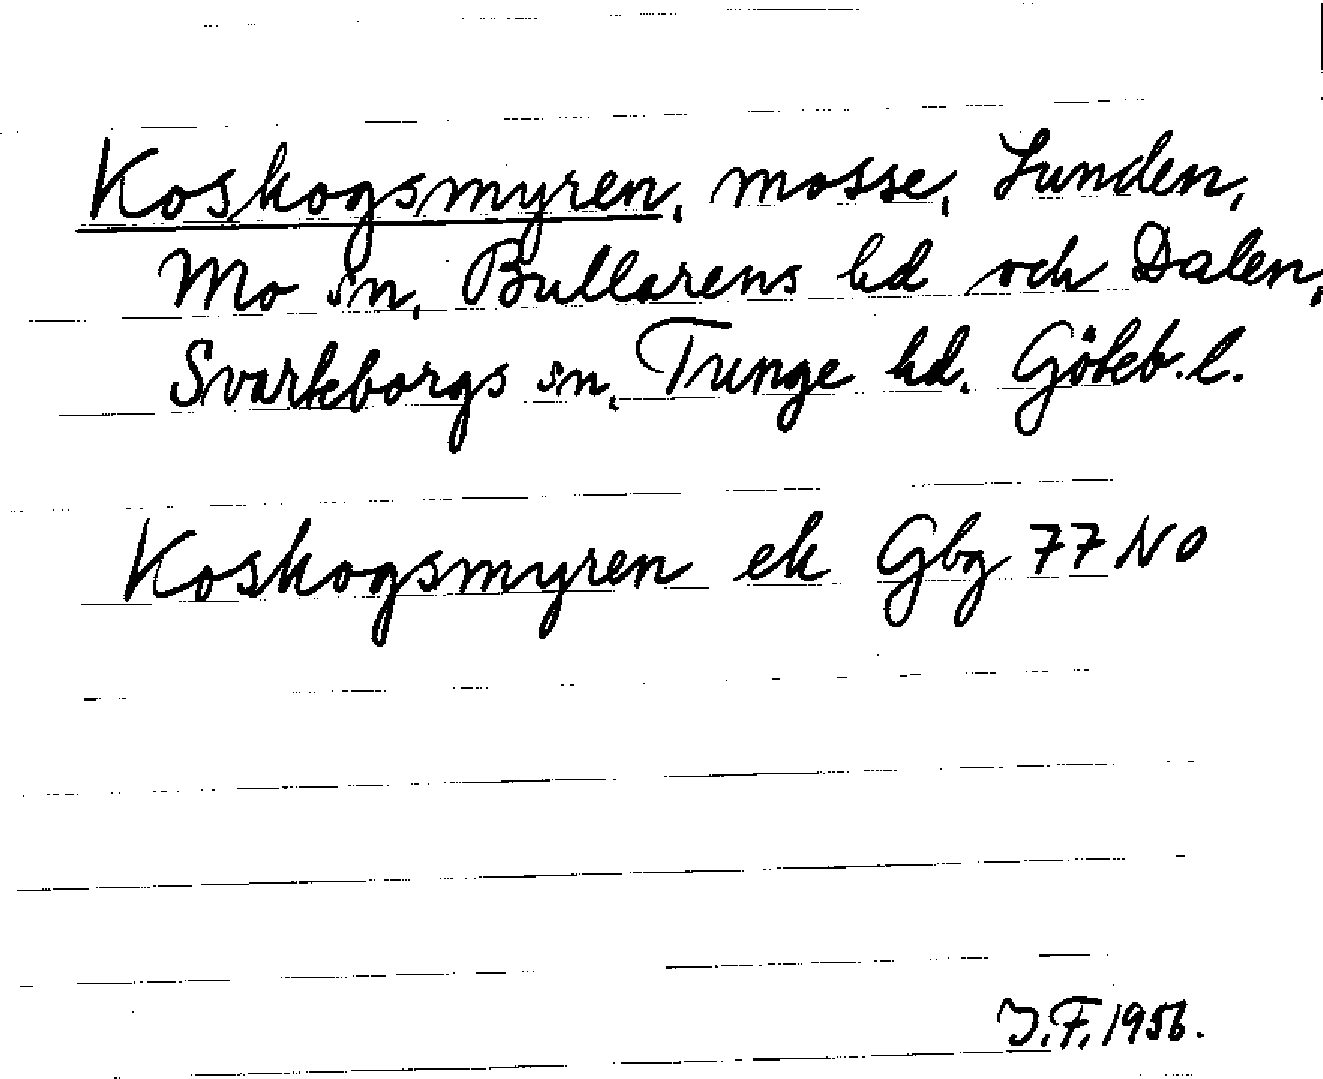 Koskogsmyren, mosse, Lunden,
Mo sn, Bullarens hd och Dalen,
Svarteborgs sn, Tunge hd. Göteb. l.
Koskogsmyren ek Gbg 77 NO
J.F. 1956.